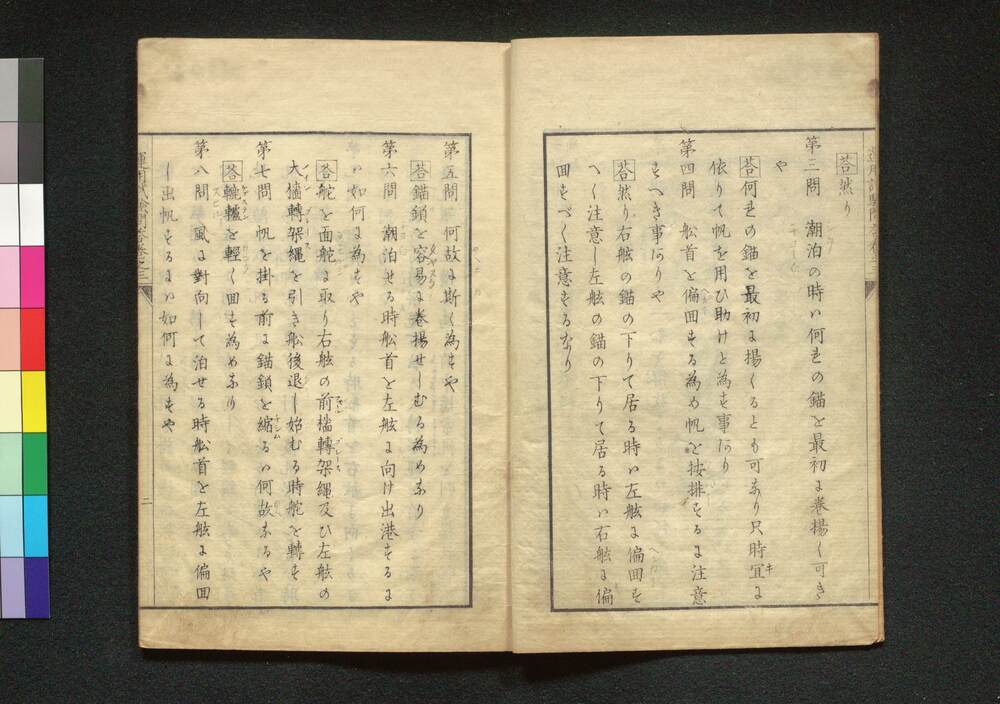 答然り
第三問　潮泊の時ハ何れの錨を最初に巻揚く可き
や
答何れの錨を最初に揚くるとも可なり只時宜に
依りて帆を用ひ助けと為す事あり
第四問　舩首を偏囬する為め帆を按排するに注意
すへき事ありや
答然り右舷の錨の下りて居る時ハ左舷に偏囬す
へく注意し左舷の錨の下りて居る時ハ右舷に偏
囬すべく注意するなり
第五問　何故に斯く為すや
答錨鎖を容易に巻揚せしむる為めなり
第六問　潮泊せる時舩首を左舷に向け出港するに
ハ如何に為すや
答舵を面舵に取り右舷の前檣轉架繩及ひ左舷の
大檣轉架繩を引き舩後退し始むる時舵を轉す
第七問　帆を掛る前に錨鎖を縮るハ何故なるや
答轆轤を輕く囬す為めなり
第八問　風に對向して泊せる時舩首を左舷に偏囬
し出帆するにハ如何に為すや
二